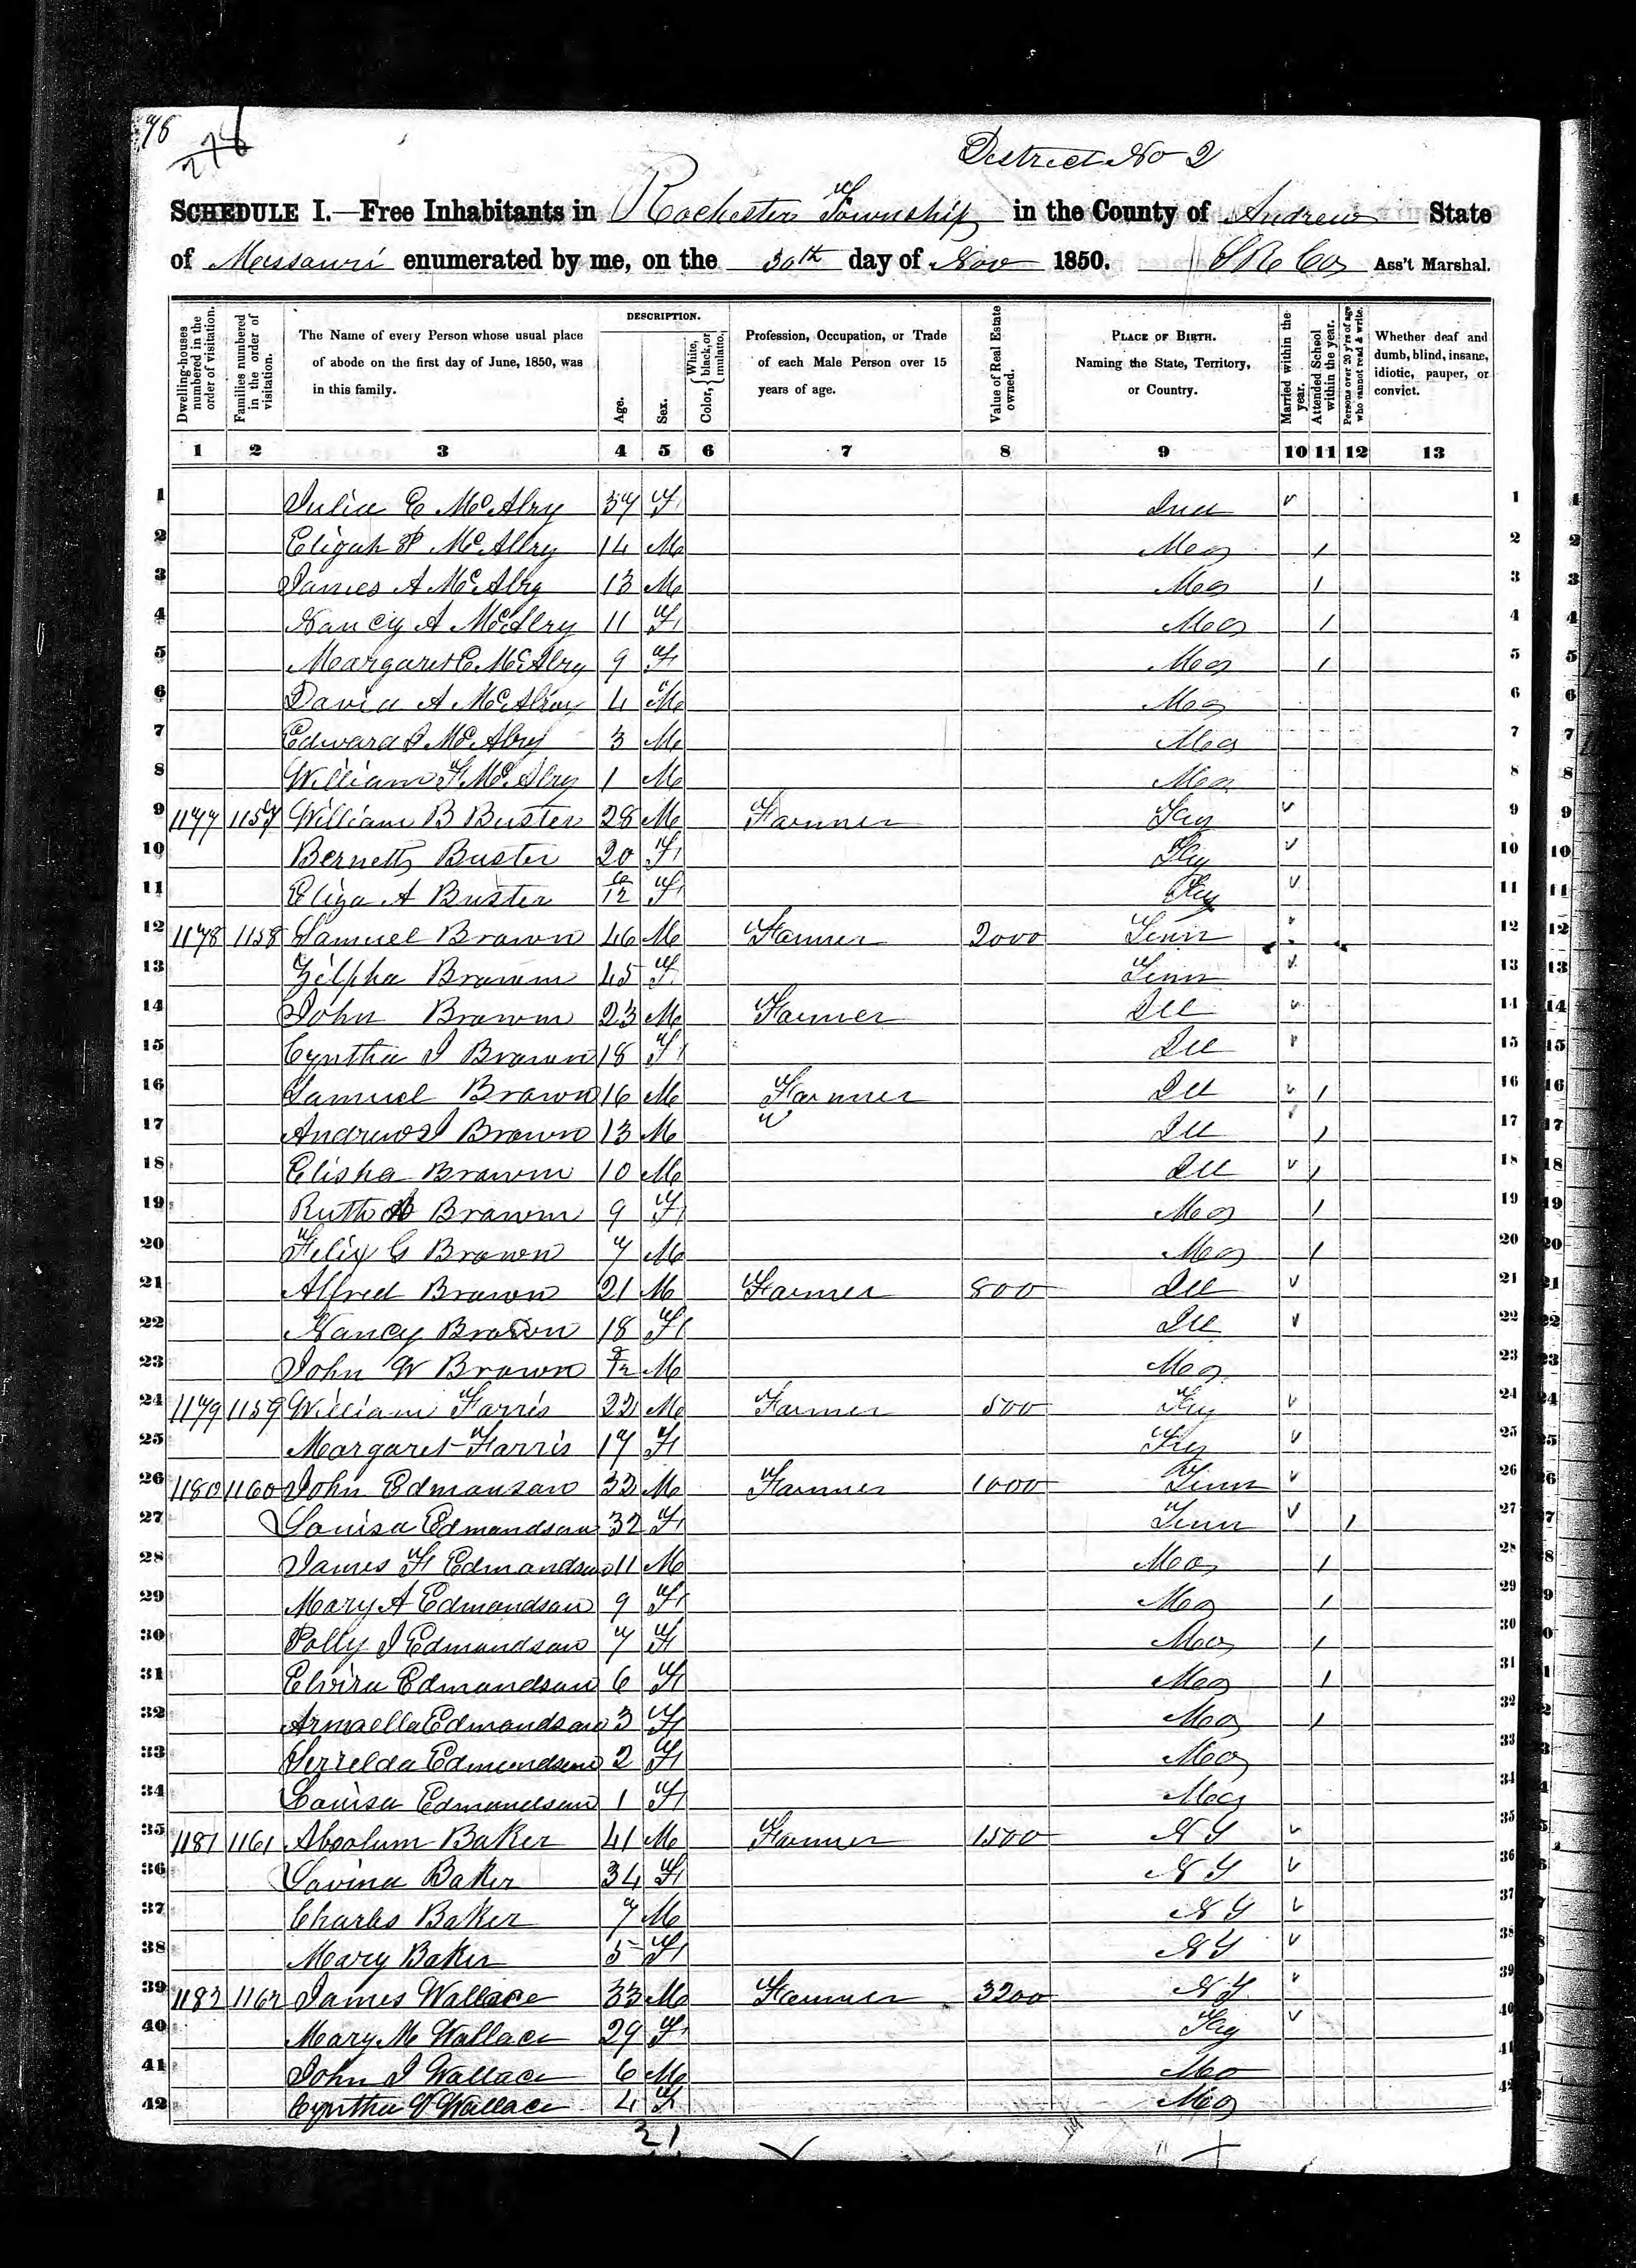 276
District No 2
SCHEDULE I.—Free Inhabitants in Rochester Township in the County of Andrew State
of Missouri enumerated by me, on the 30th day of Nov 1850. Ass't Marshal.
Dwelling-houses numbered in the order of visitation.
Families numbered in the order of visitation.
The Name of every Person whose usual place of abode on the first day of June, 1850, was in this family.
DESCRIPTION.
Age.
Sex.
Color, { White, black, or mulatto.
Profession, Occupation, or Trade of each Male Person over 15 years of age.
Value of Real Estate owned.
PLACE OF BIRTH. Naming the State, Territory, or Country.
Married within the year.
Attended School within the year.
Persons over 20 y'rs of age who cannot read & write.
Whether deaf and dumb, blind, insane, idiotic, pauper, or convict.
1 2 3 4 5 6 7 8 9 10 11 12 13
1 Julia E McAlry 37 F Ind 1
2 Eligah P McAlry 14 M Mo / 2
3 James A McAlry 13 M Mo / 3
4 Nancy A McAlry 11 F Mo / 4
5 Margaret E McAlry 9 F Mo / 5
6 David A McAlroy 4 M Mo 6
7 Edward J McAlry 3 M Mo 7
8 William F McAlry 1 M Mo 8
9 1177 1157 William B Buster 28 M Farmer Ky 9
10 Bernetta Buster 20 F Ky 10
11 Eliza A Buster 6/12 F Ky 11
12 1178 1158 Samuel Brown 46 M Farmer 2000 Tenn 12
13 Zilpha Brown 45 F Tenn 13
14 John Brown 23 M Farmer Ill 14
15 Cyntha J Brown 18 F Ill 15
16 Samuel Brown 16 M Farmer Ill / 16
17 Andrew J Brown 13 M " Ill / 17
18 Elisha Brown 10 M Ill / 18
19 Ruth Brown 9 F Mo / 19
20 Felix G Brown 7 M Mo / 20
21 Alfred Brown 21 M Farmer 800 Ill 21
22 Nancy Brown 18 F Ill 22
23 John W Brown 9/12 M Mo 23
24 1179 1159 William Farris 22 M Farmer 500 Ky 24
25 Margaret Farris 17 F Ky 25
26 1180 1160 John Edmonson 32 M Farmer 1000 Tenn 26
27 Louisa Edmondson 32 F Tenn / 27
28 James F Edmondson 11 M Mo / 28
29 Mary A Edmondson 9 F Mo / 29
30 Polly J Edmondson 7 F Mo / 30
31 Elvira Edmondson 6 F Mo / 31
32 Armaella Edmondson 3 F Mo / 32
33 Serrelda Edmondson 2 F Mo 33
34 Louisa Edmondson 1 F Mo 34
35 1181 1161 Absolum Baker 41 M Farmer 1500 N Y 35
36 Lovina Baker 34 F N Y 36
37 Charles Baker 7 M N Y 37
38 Mary Baker 5 F N Y 38
39 1182 1162 James Wallace 33 M Farmer 3200 N Y 39
40 Mary M Wallace 29 F Ky 40
41 John J Wallace 6 M Mo 41
42 Cyntha V Wallace 4 F Mo 42
21